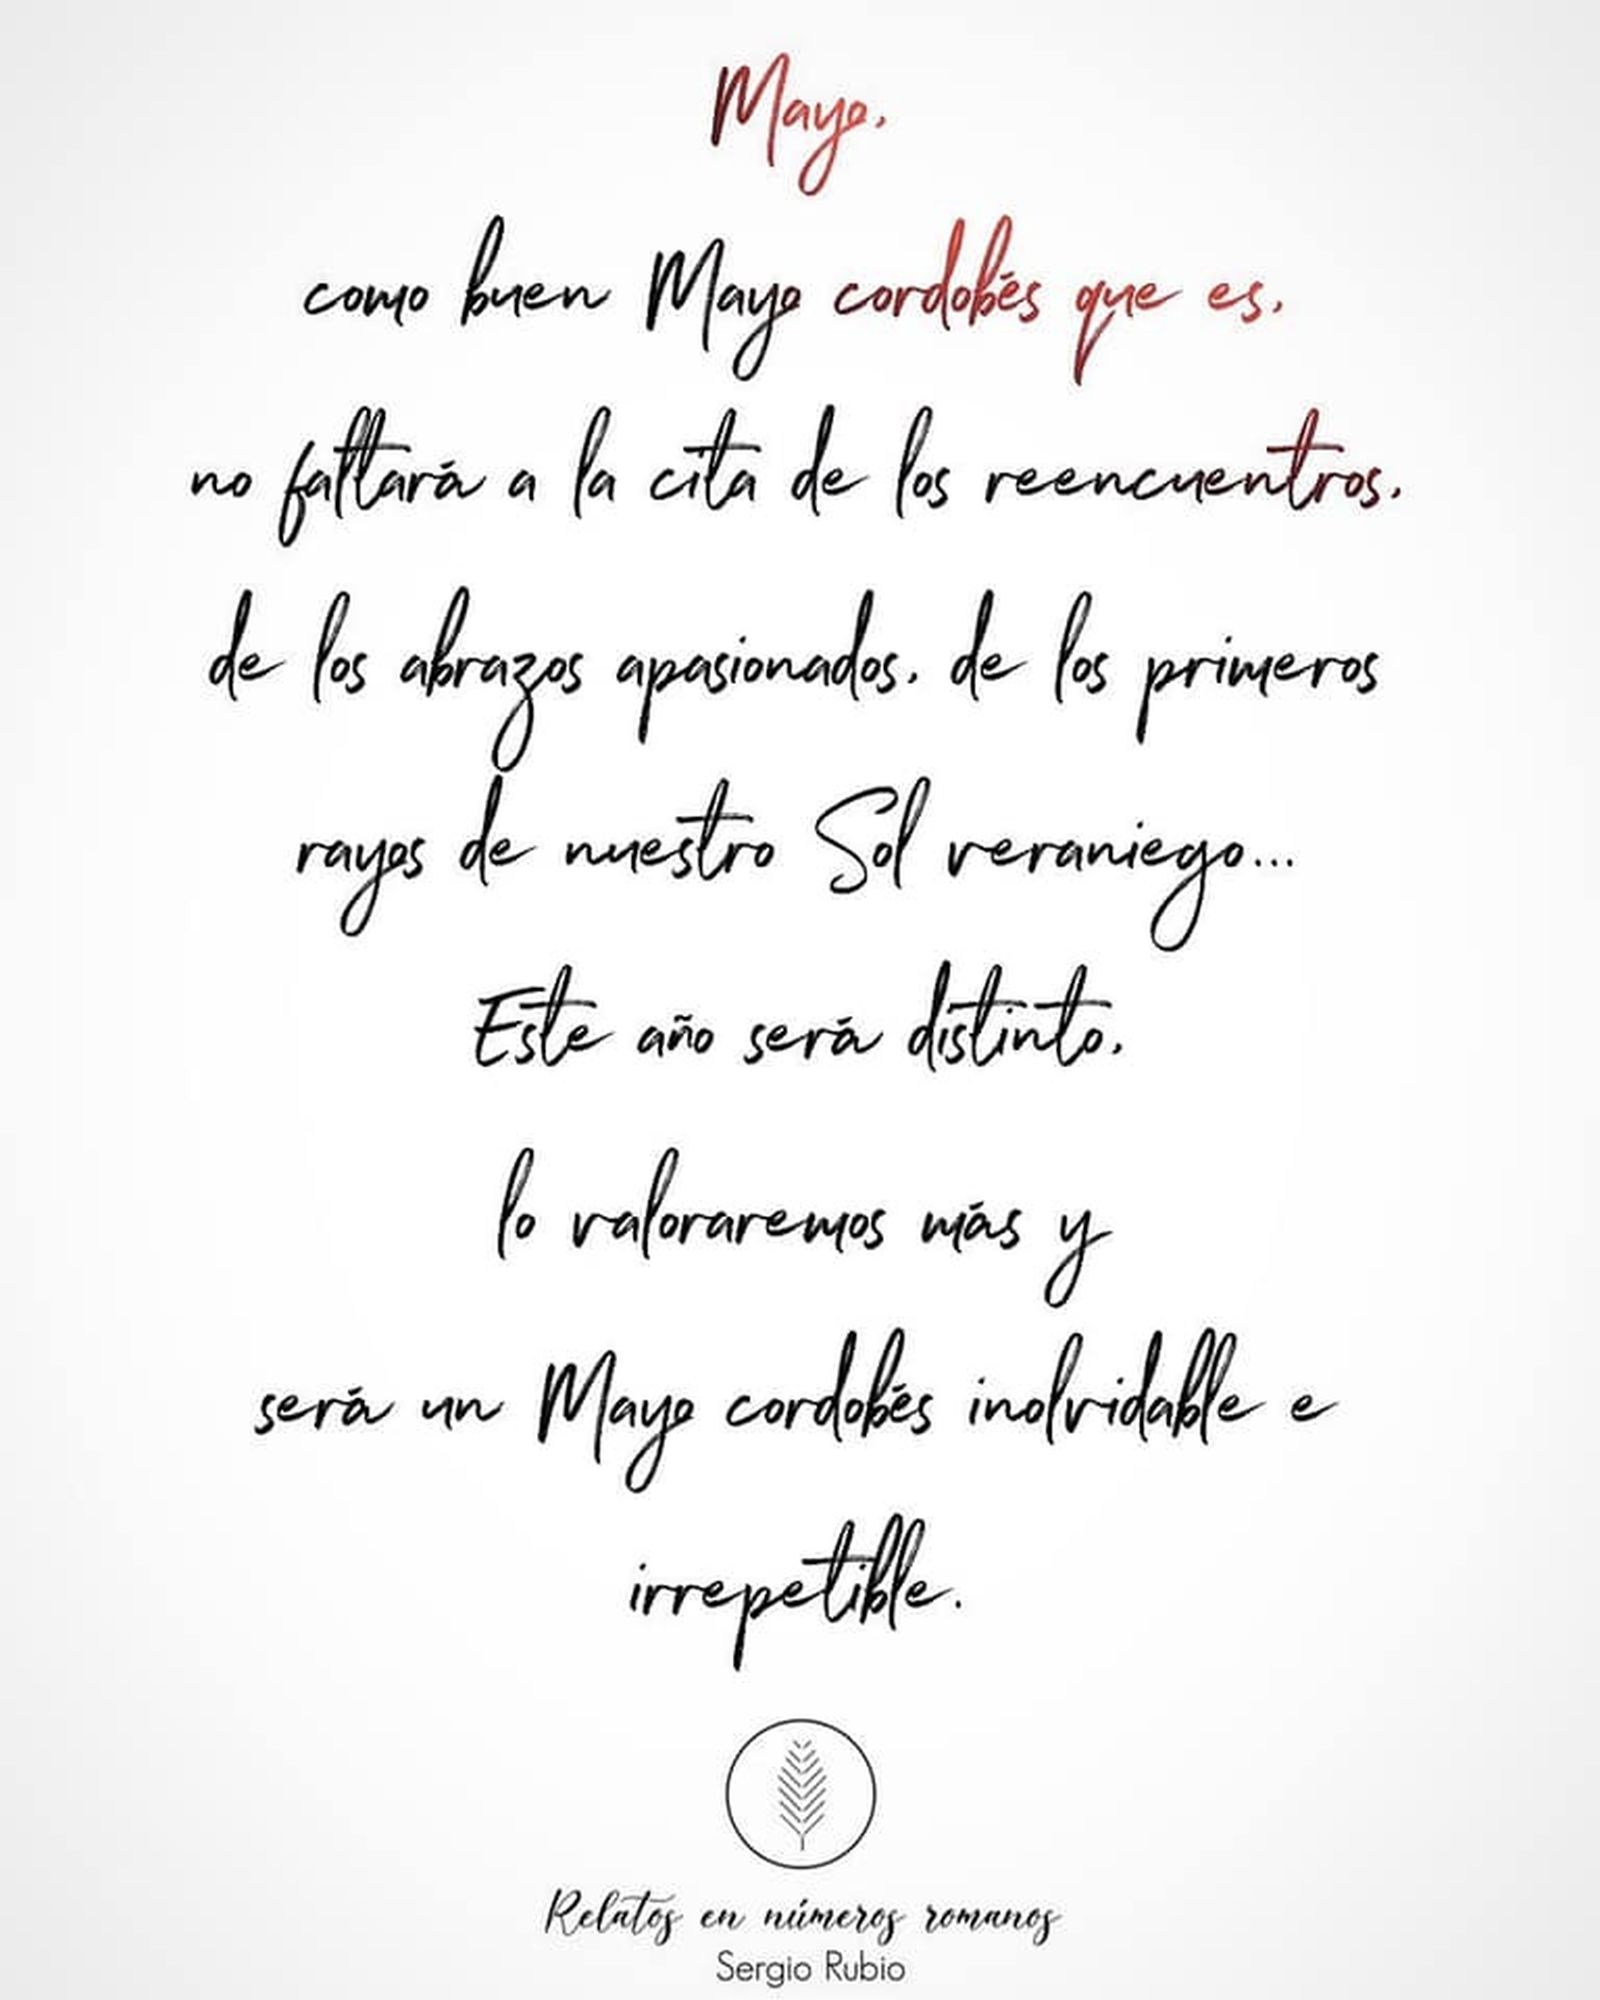 Mayo,
como buen Mayo cordobés que es,
no faltará a la cita de los reencuentros,
de los abrazos apasionados, de los primeros
rayos de nuestro Sol veraniego...
Este año será distinto,
lo valoraremos más y
será un Mayo cordobés inolvidable e
irrepetible.
Relatos en números romanos
Sergio Rubio